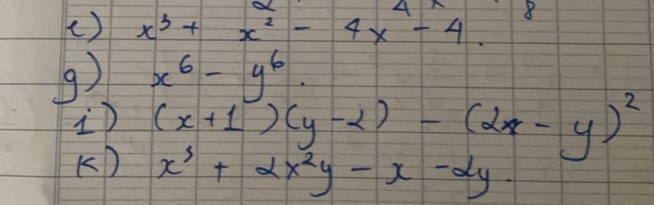 e) x³ + x² - 4x - 4.
g) x⁶ - y⁶.
i) (x+1)(y-2) - (2x - y)²
k) x³ + 2x²y - x - 2y.